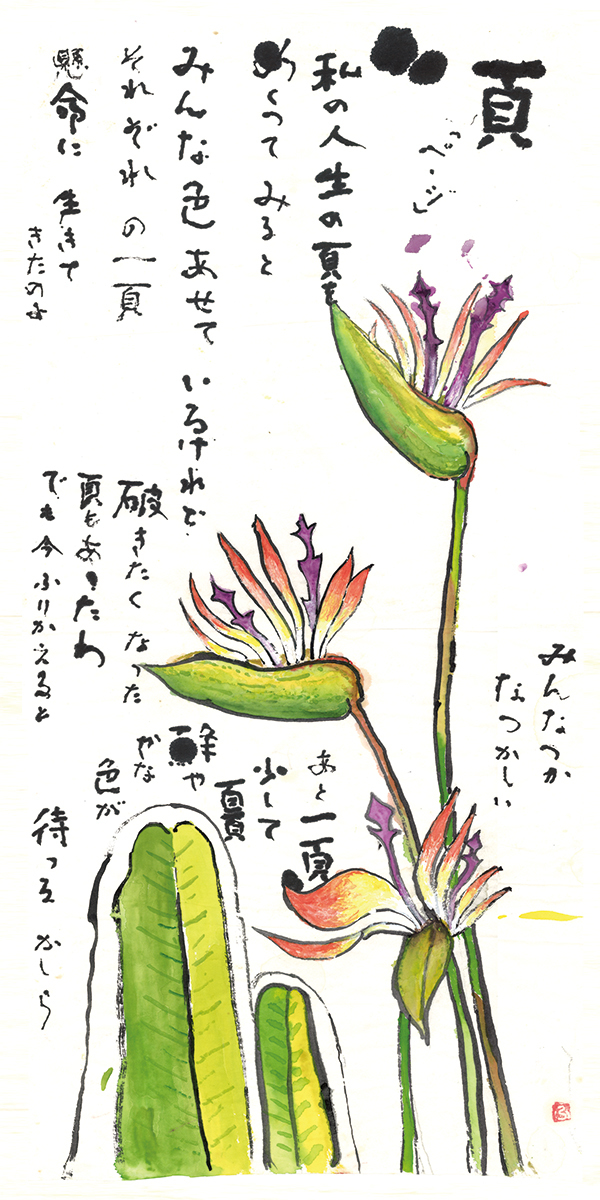 頁
「ページ」
私の人生の頁を
めくってみると
みんな色あせて いるけれど
それぞれの一頁
懸命に 生きて
きたのよ
破きたくなった
頁もあったわ
でも今ふりかえると
みんなつか
なつかしい
あと一頁
少しで
頁
鮮や
かな
色が
待ってるかしら